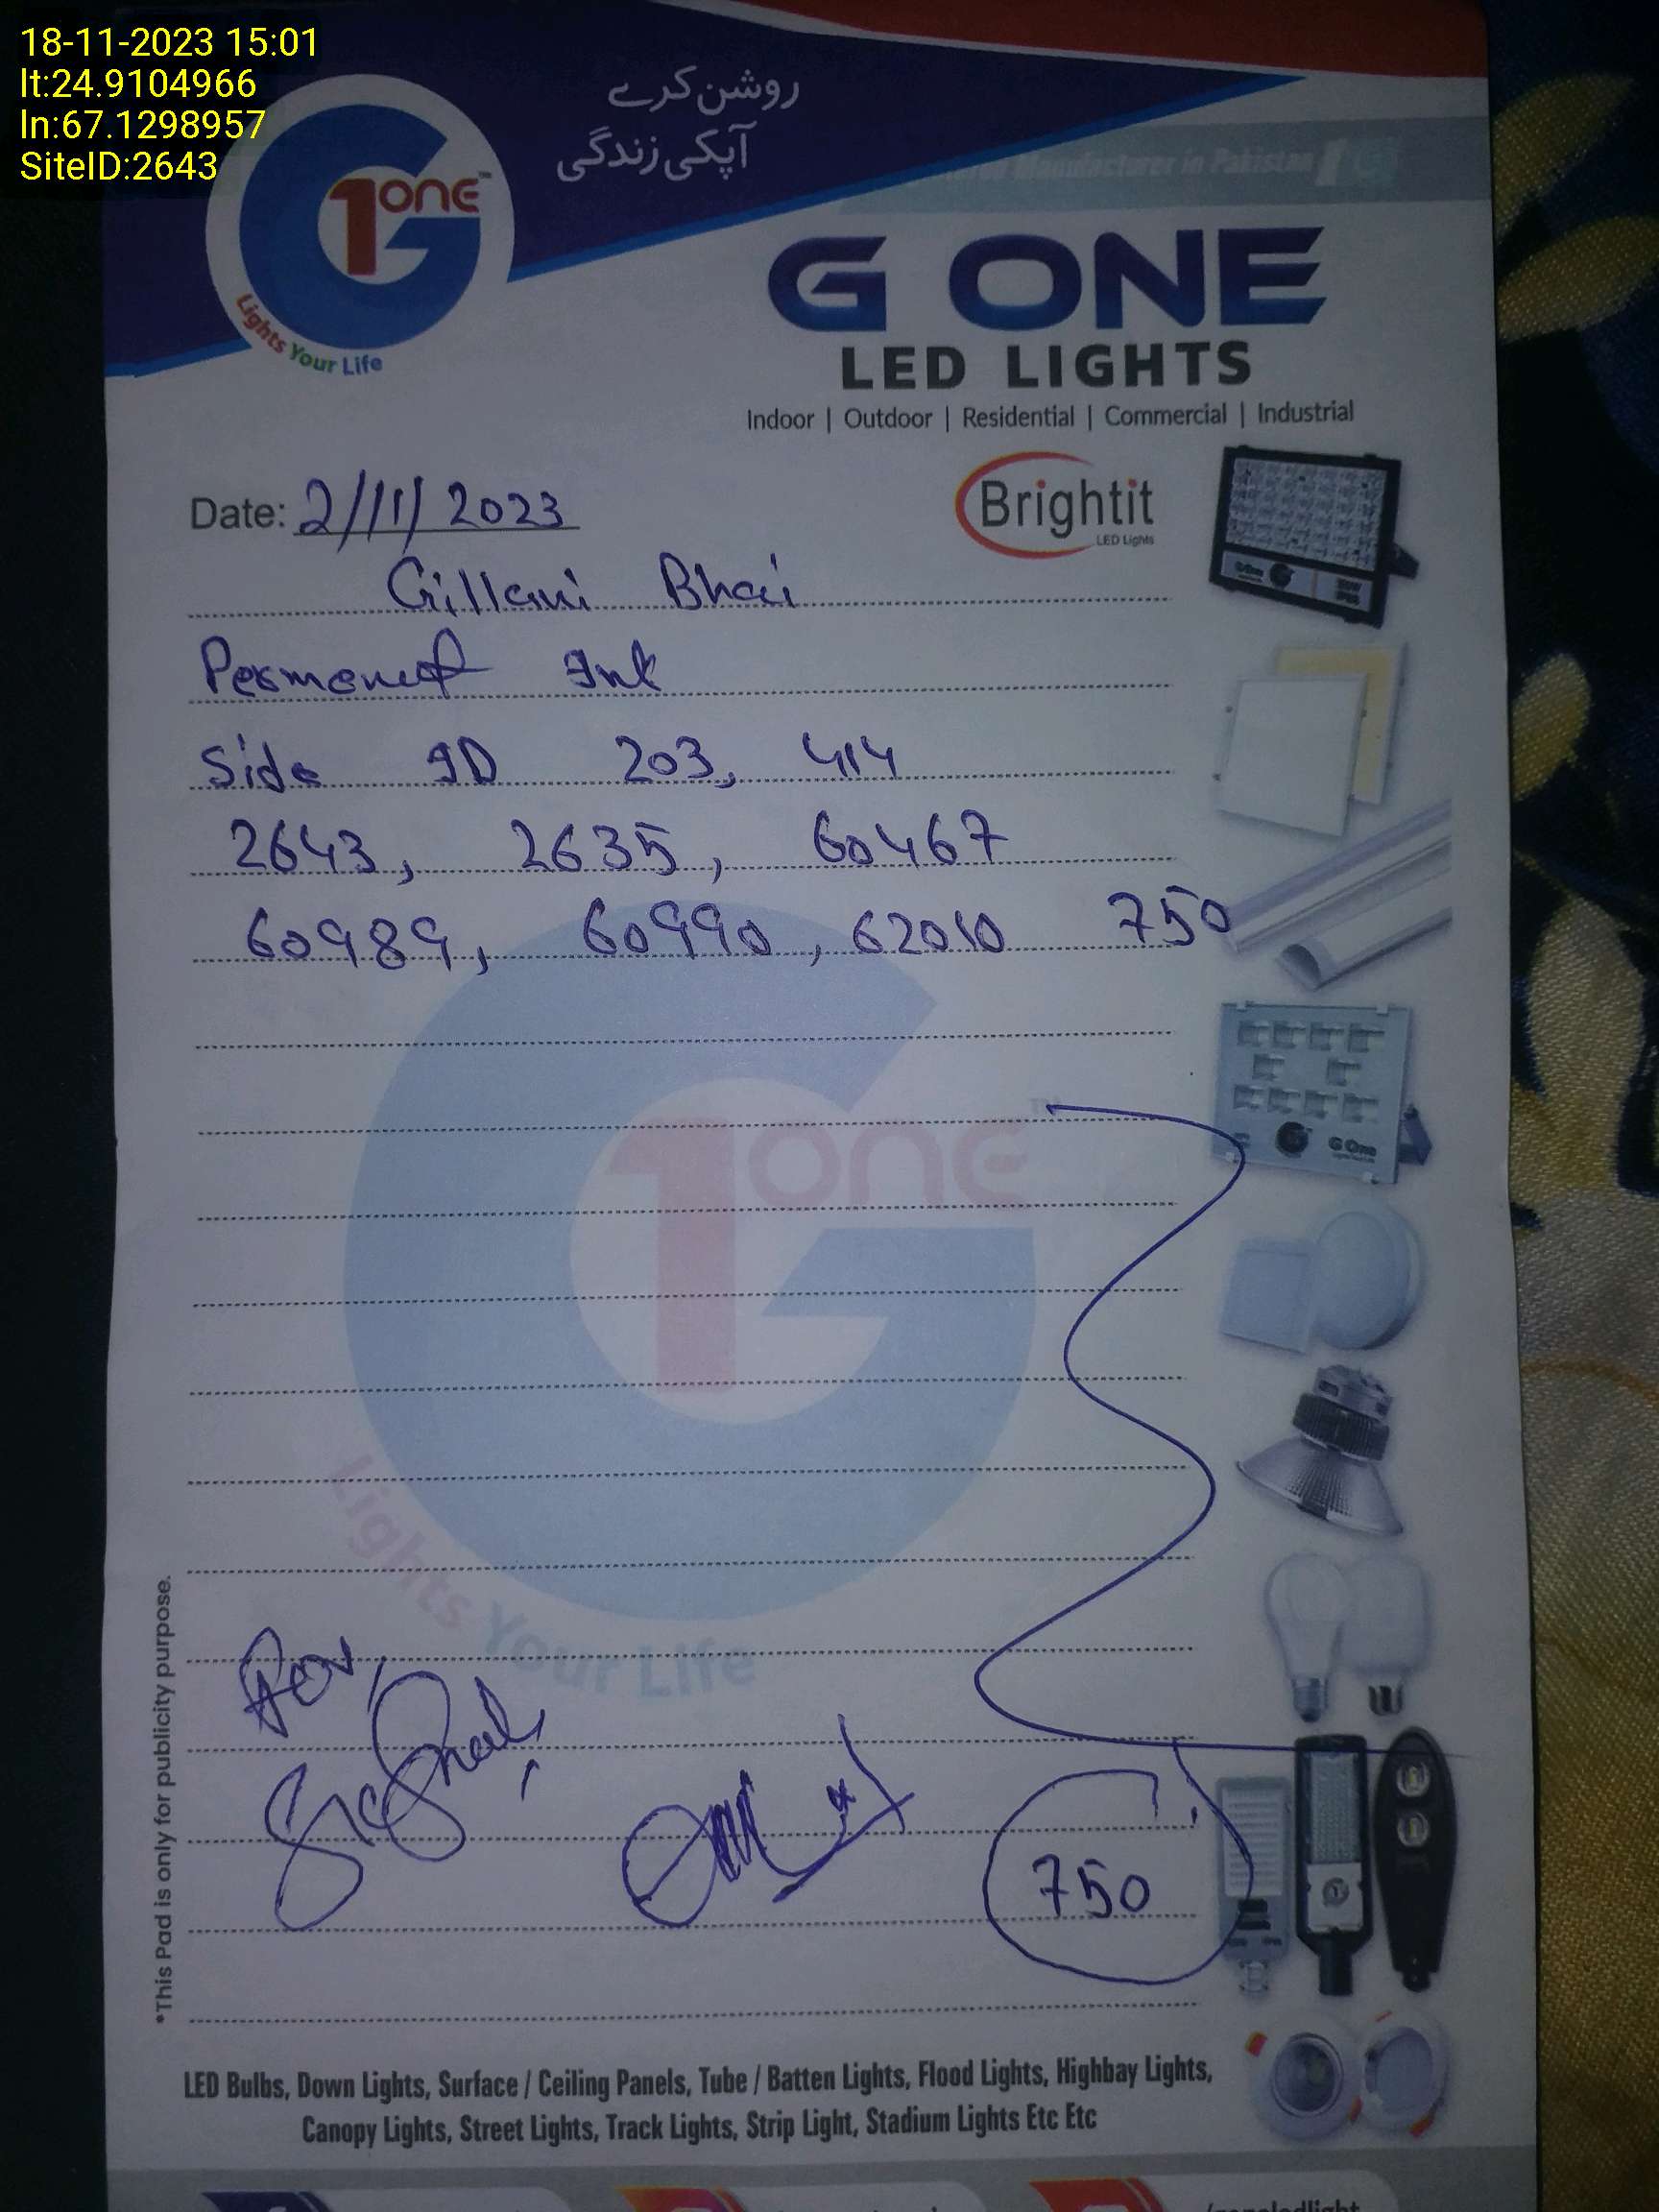 18-11-2023 15:01
lt:24.9104966
ln:67.1298957
SiteID:2643
روشن کرے
آپکی زندگی
Manufacturer in Pakistan
G1 ONE™
Lights Your Life
G ONE
LED LIGHTS
Indoor | Outdoor | Residential | Commercial | Industrial
Brightit
LED Lights
Date: 2/11/2023
Gillani Bhai
Permenet Ink
Side ID 203, 414
2643, 2635, 60467
60989, 60990, 62010 750
G1 ONE
Lights Your Life
G One
750
*This Pad is only for publicity purpose.
LED Bulbs, Down Lights, Surface / Ceiling Panels, Tube / Batten Lights, Flood Lights, Highbay Lights,
Canopy Lights, Street Lights, Track Lights, Strip Light, Stadium Lights Etc Etc